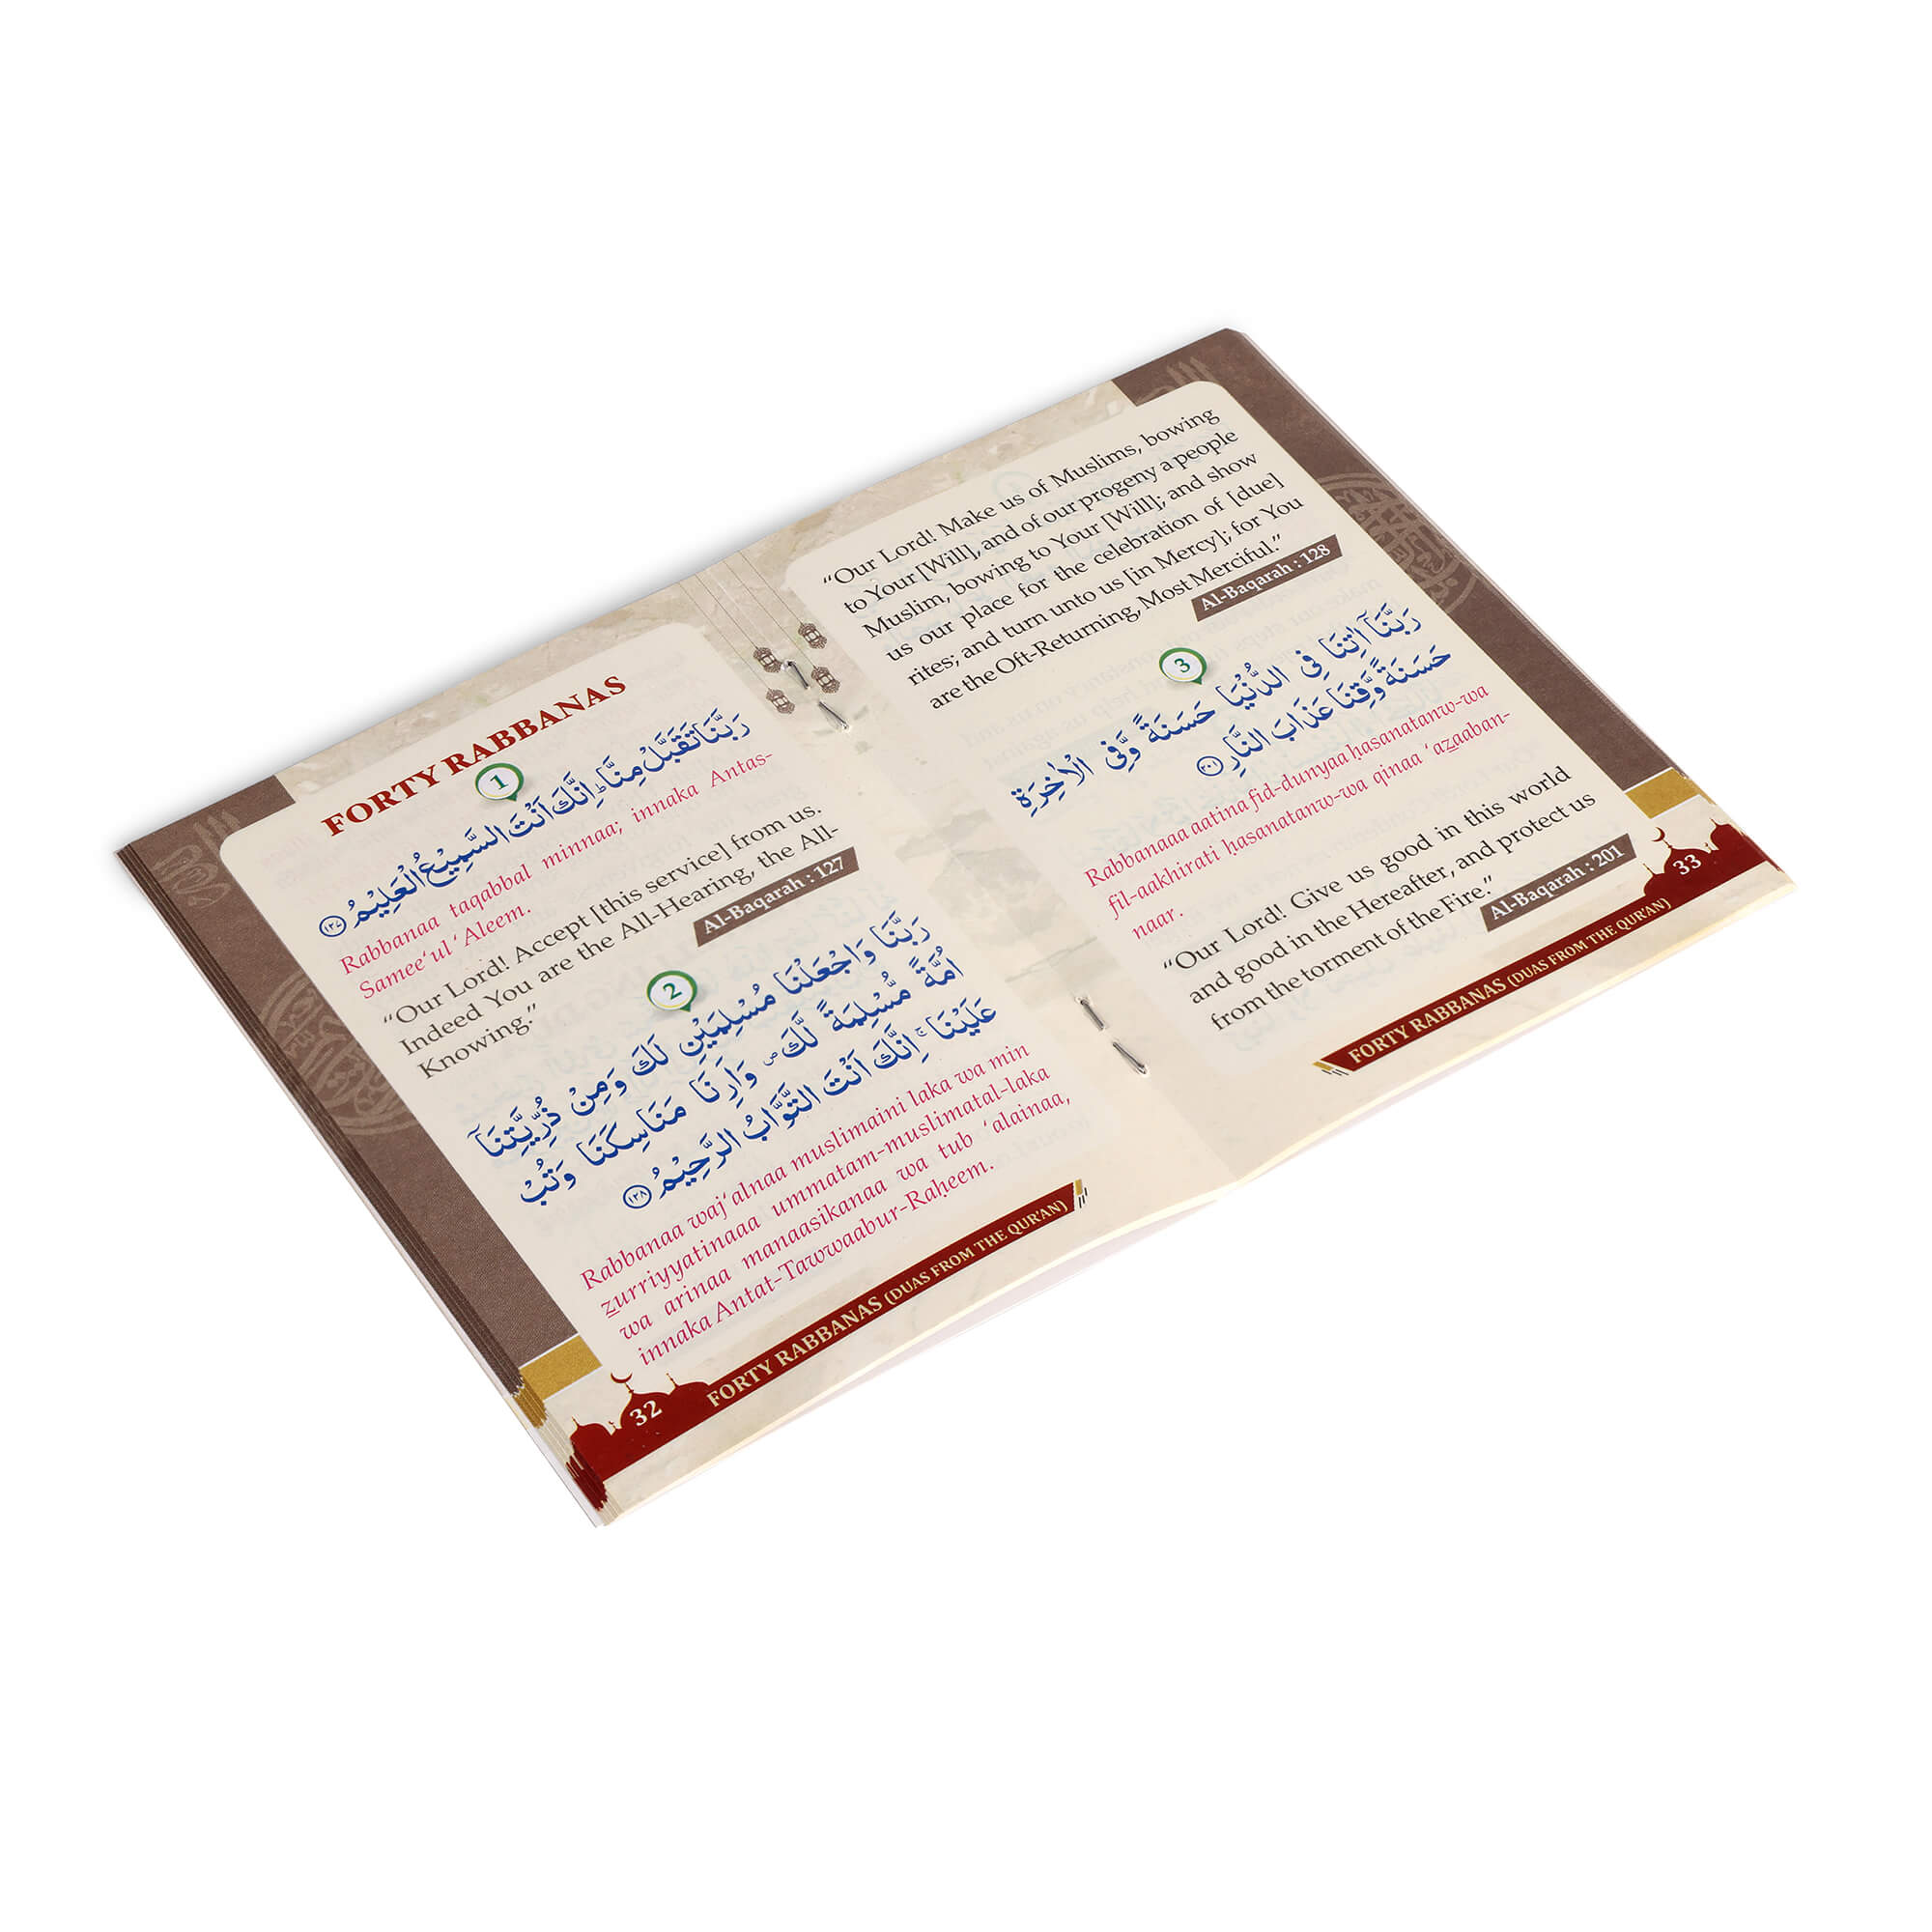 FORTY RABBANAS
1
رَبَّنَا تَقَبَّلْ مِنَّا ؕ اِنَّكَ اَنْتَ السَّمِيْعُ الْعَلِيْمُ ﴿۱۲۷﴾
Rabbanaa taqabbal minnaa; innaka Antas-
Samee‘ul ‘Aleem.
“Our Lord! Accept [this service] from us.
Indeed You are the All-Hearing, the All-
Knowing.”
Al-Baqarah : 127
2
رَبَّنَا وَاجْعَلْنَا مُسْلِمَيْنِ لَكَ وَمِنْ ذُرِّيَّتِنَآ
اُمَّةً مُّسْلِمَةً لَّكَ ۪ وَاَرِنَا مَنَاسِكَنَا وَتُبْ
عَلَيْنَا ۚ اِنَّكَ اَنْتَ التَّوَّابُ الرَّحِيْمُ ﴿۱۲۸﴾
Rabbanaa waj‘alnaa muslimaini laka wa min
zurriyyatinaaa ummatam-muslimatal-laka
wa arinaa manaasikanaa wa tub ‘alainaa,
innaka Antat-Tawwaabur-Raḥeem.
32
FORTY RABBANAS (DUAS FROM THE QUR'AN)
“Our Lord! Make us of Muslims, bowing
to Your [Will], and of our progeny a people
Muslim, bowing to Your [Will]; and show
us our place for the celebration of [due]
rites; and turn unto us [in Mercy]; for You
are the Oft-Returning, Most Merciful.”
Al-Baqarah : 128
3
رَبَّنَآ اٰتِنَا فِى الدُّنْيَا حَسَنَةً وَّفِى الْاٰخِرَةِ
حَسَنَةً وَّقِنَا عَذَابَ النَّارِ ﴿۲۰۱﴾
Rabbanaaa aatina fid-dunyaa ḥasanatanw-wa
fil-aakhirati ḥasanatanw-wa qinaa ‘azaaban-
naar.
“Our Lord! Give us good in this world
and good in the Hereafter, and protect us
from the torment of the Fire.”
Al-Baqarah : 201
FORTY RABBANAS (DUAS FROM THE QUR'AN)
33